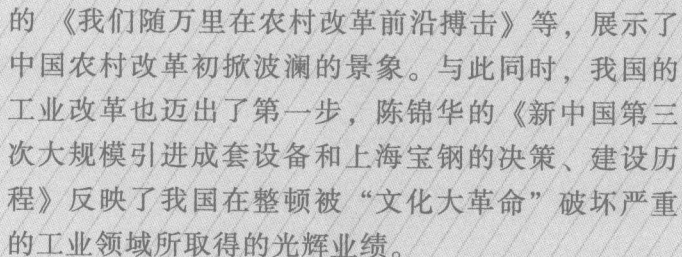 的 《我们随万里在农村改革前沿搏击》等，展示了
中国农村改革初掀波澜的景象。与此同时，我国的
工业改革也迈出了第一步，陈锦华的《新中国第三
次大规模引进成套设备和上海宝钢的决策、建设历
程》反映了我国在整顿被“文化大革命”破坏严重
的工业领域所取得的光辉业绩。